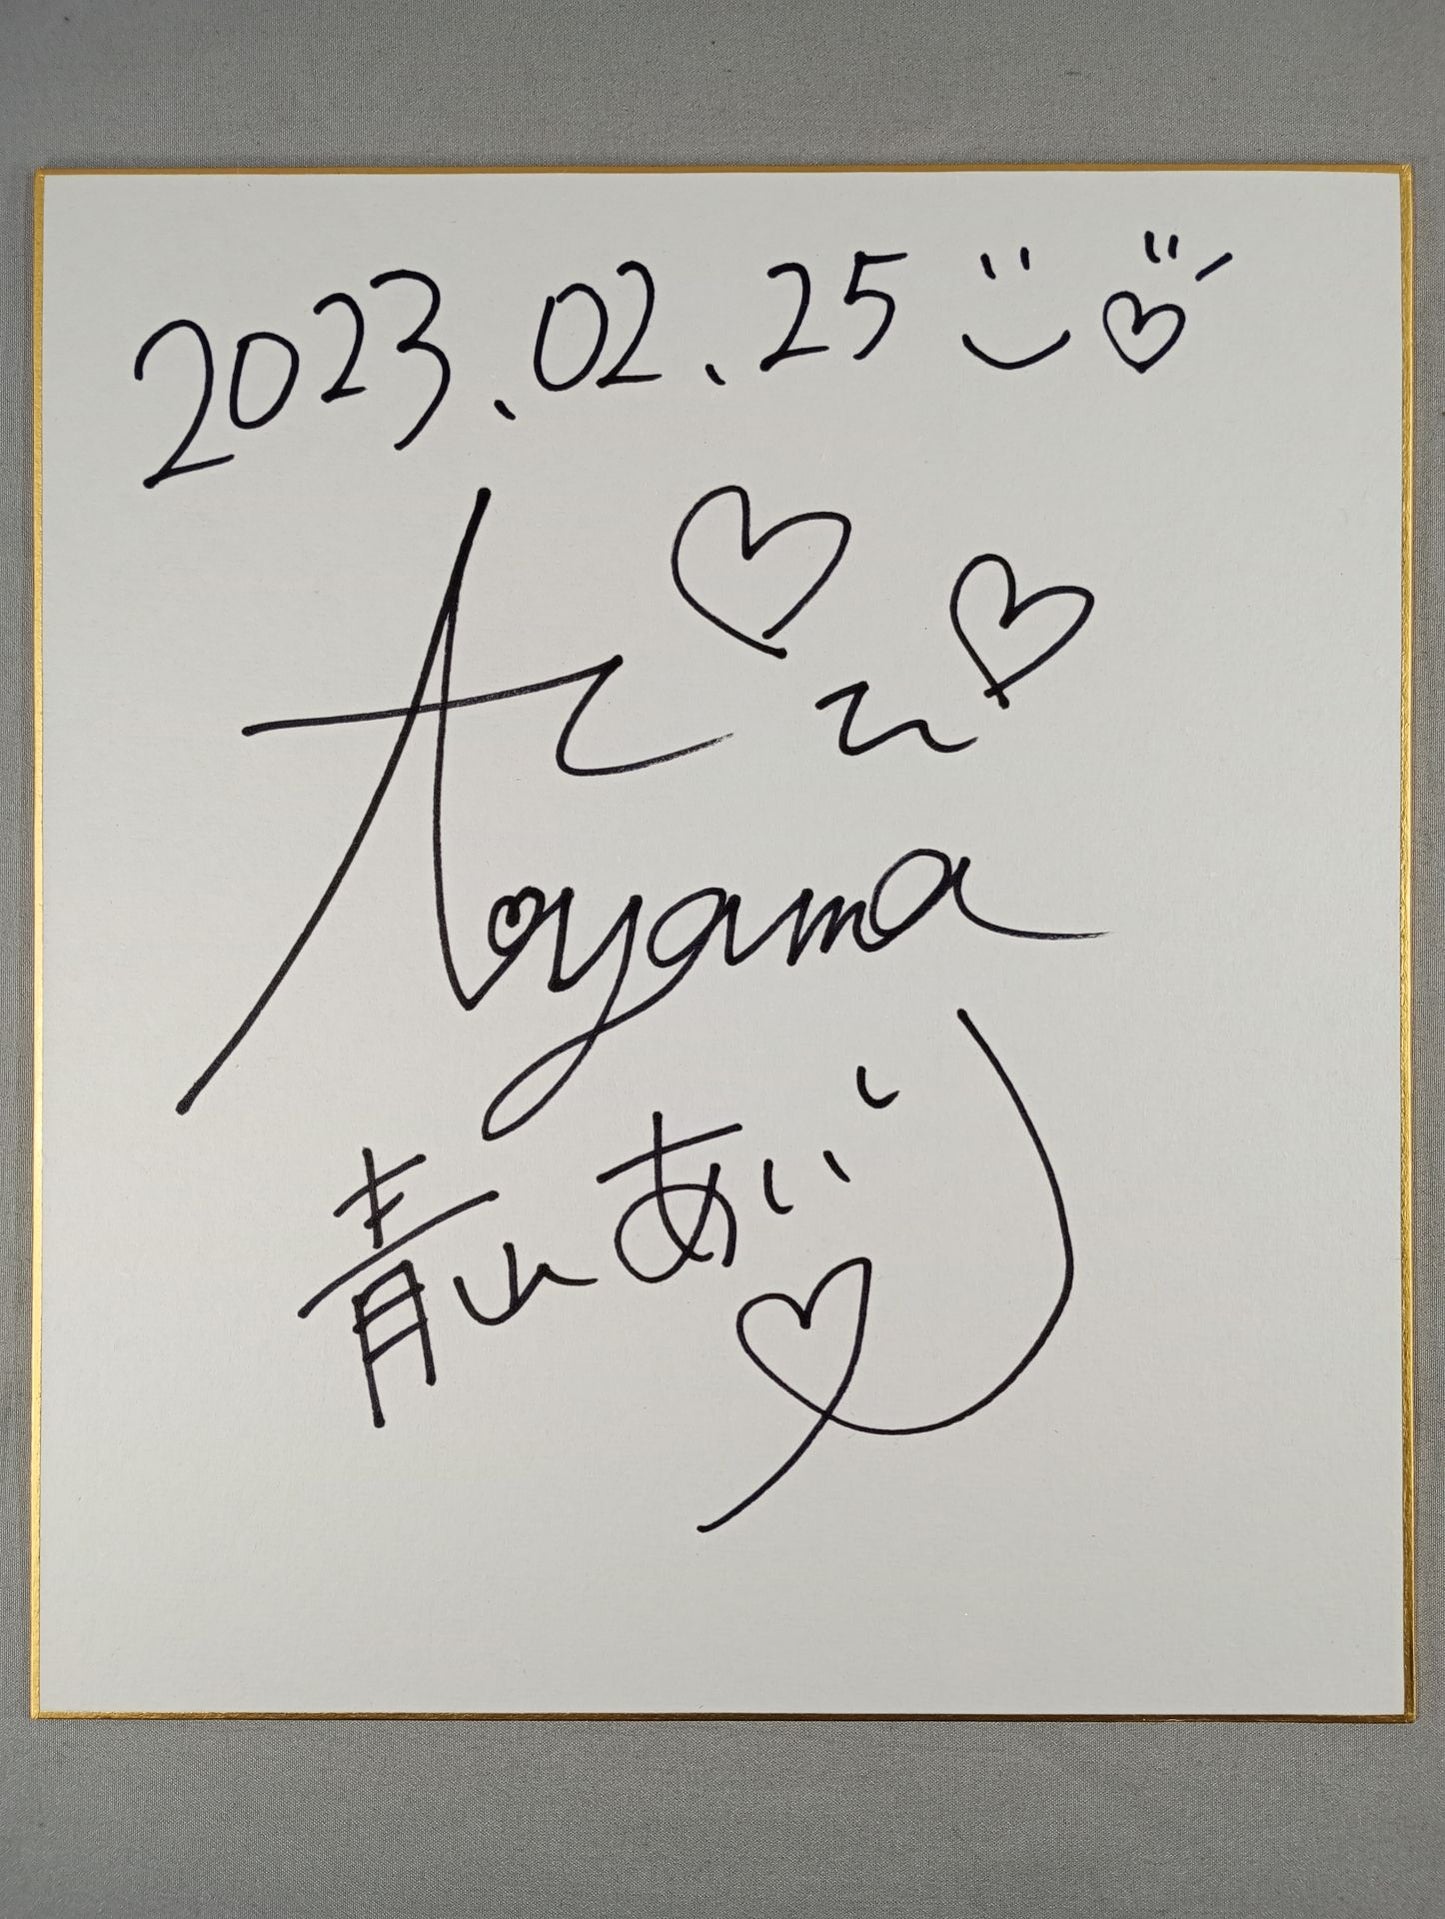 2023.02.25
Aoyama
青山あい